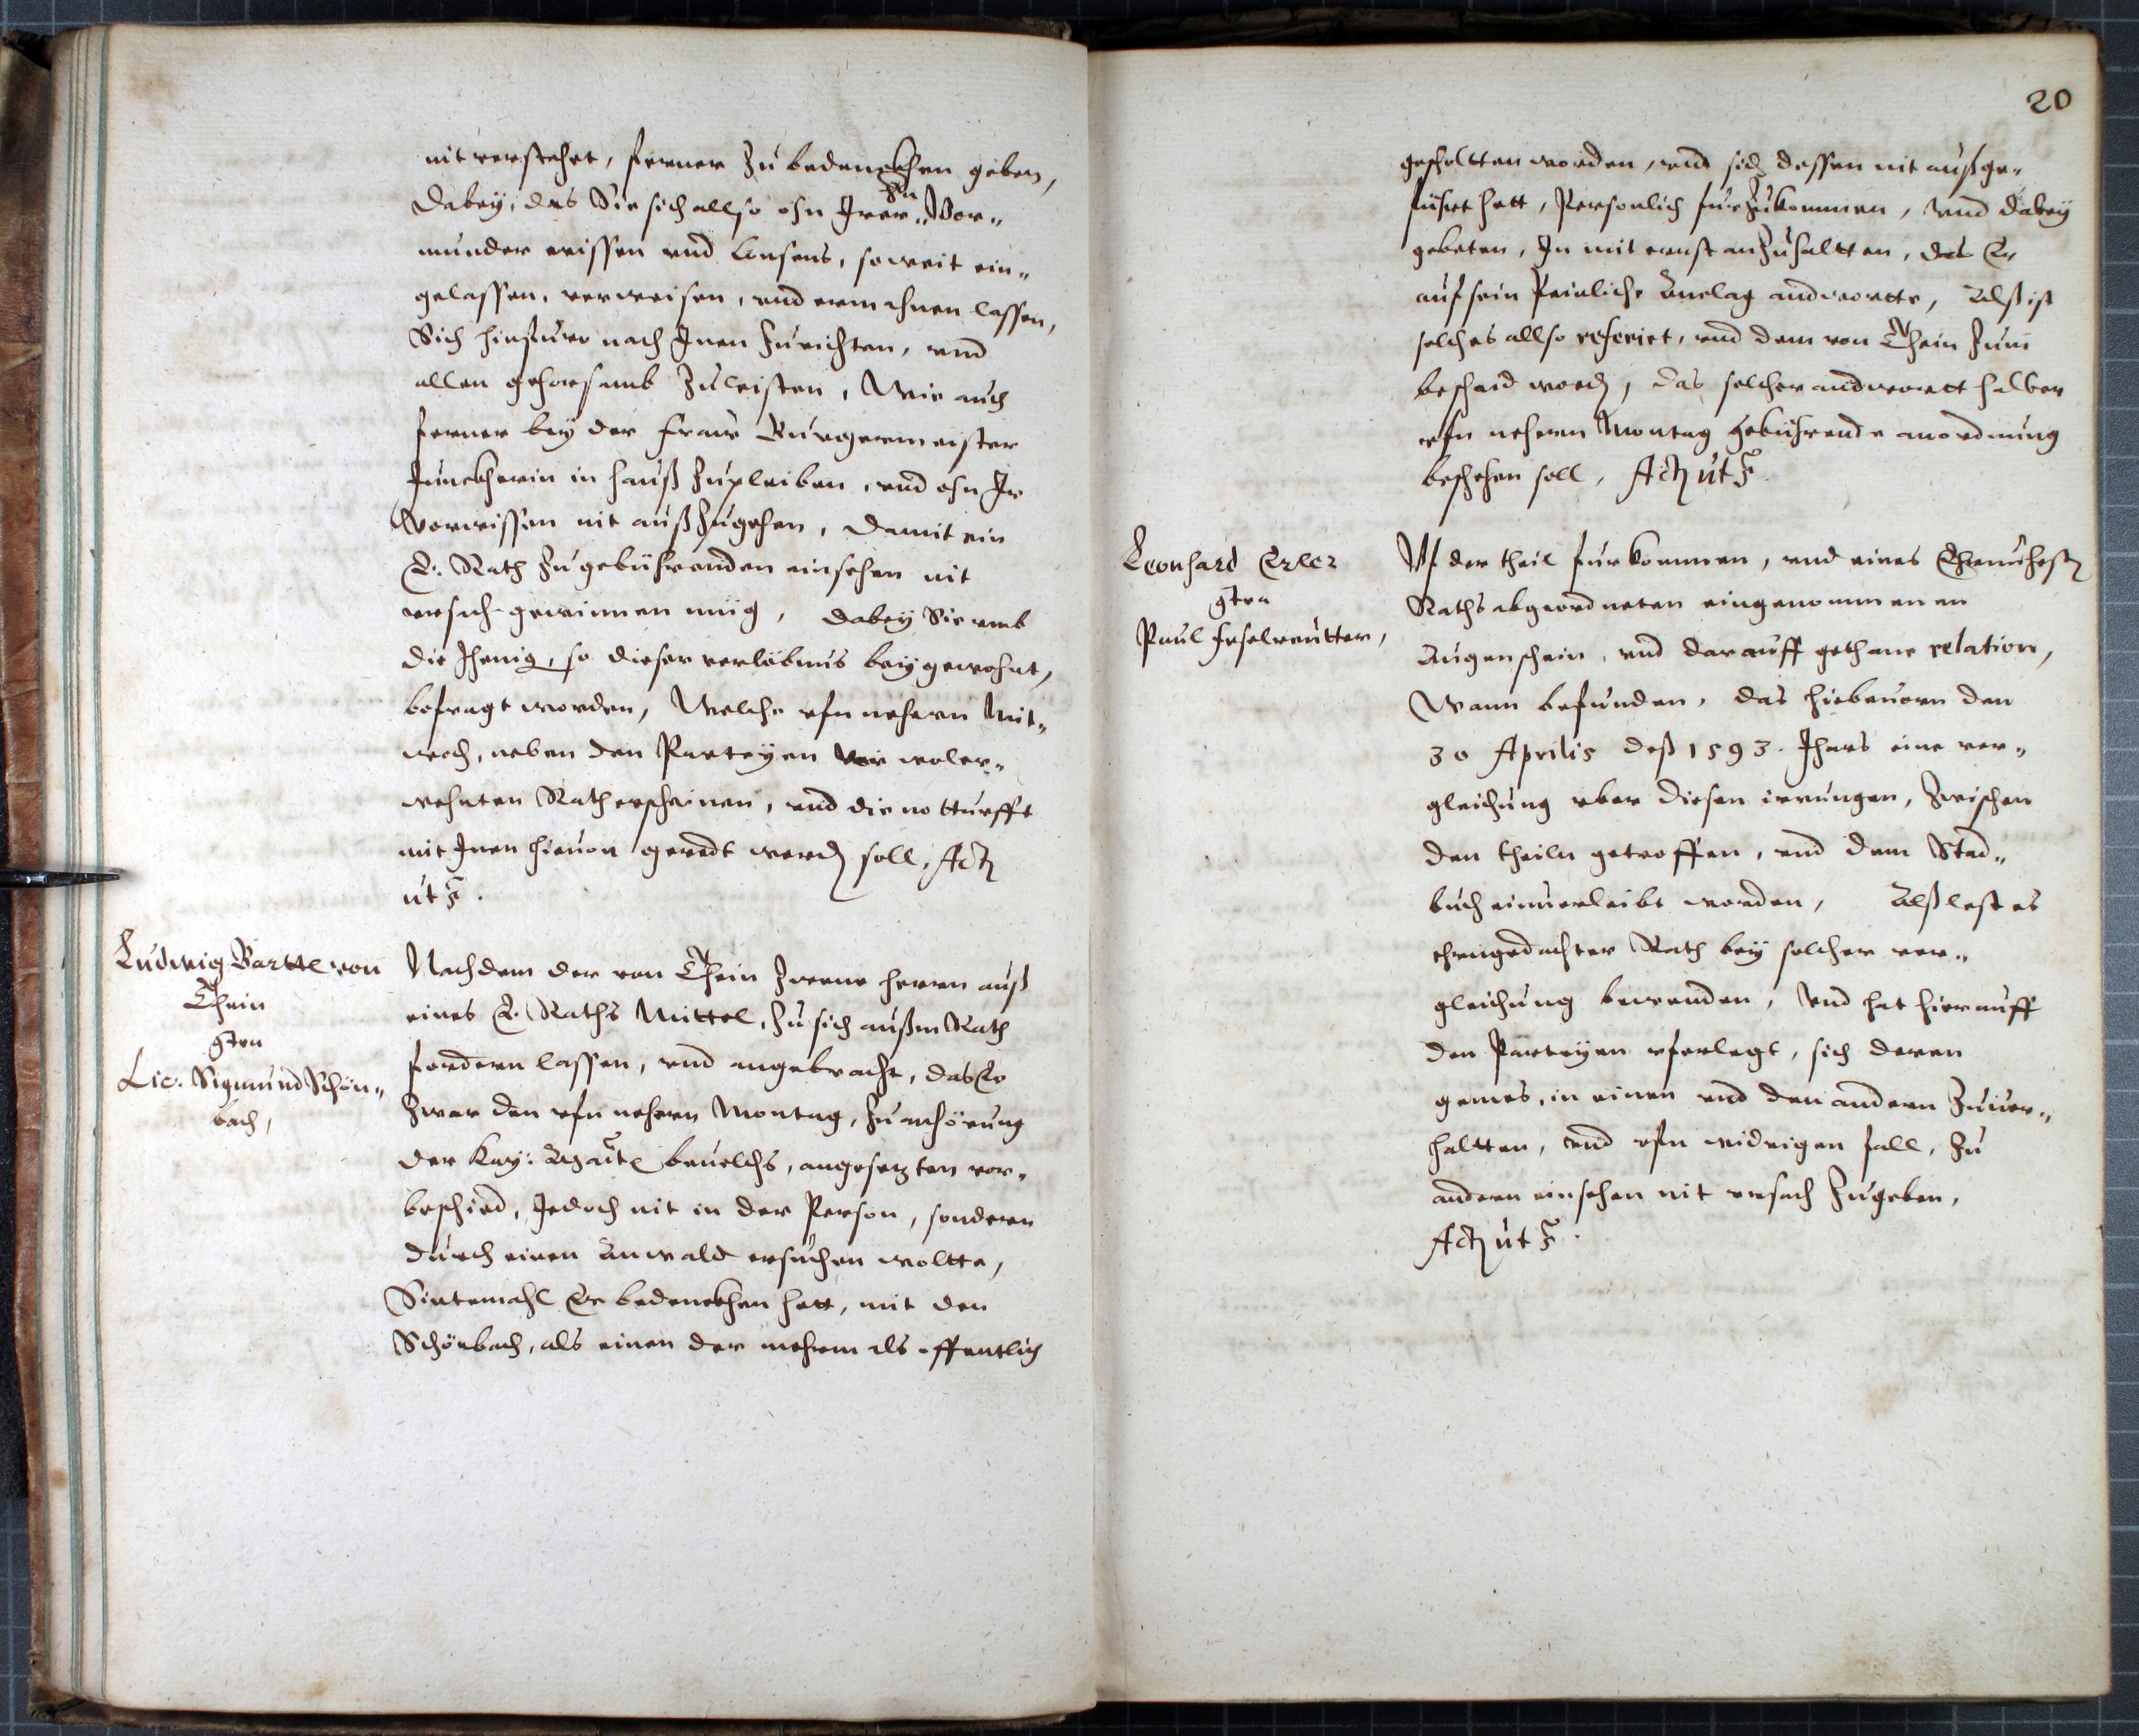 nit verstehet, ferner zu bedenckhen geben,
Dabey, das Sie sich allso ohn Irer Vor„
munder wissen vnd Consens, so weit ein„
gelassen, verweisen, vnd ermahnen lassen,
Sich hinfuro nach Inen zurichten, vnd
allen gehorsamb zuleisten, Wie auch
ferner bey der Fraw Burgermeister
Junckherin in hauß zupleiben, vnd ohn Ir
Vorwissen nit außzugehen, damit ein
E: Rath zu gebührenden einsehen nit
vrsach gewinnen müg, dabey Sie vmb
die Jhenig, so dieser verlöbnus beygewohnt,
befragt worden, Welche vfn nehern Mit„
woch, neben den Parteyen vor woler„
wehnten Rath erscheinen, vnd die notturfft
mit Inen hieuon geredt werden soll, Act
ut s.
Ludwig Bartl von
Thein
gten
Lic: Sigmund Schön„
bach,
Nachdem der von Thein zweene herrn auß
eines E: Raths Mittel, zu sich außm Rath
fordern lassen, vnd angebracht, das Er
zwar den vfn nehern Montag, zu anhörung
der Kay: Mayt beuelchs, angesetzten vor„
beschied, Jedoch nit in der Person, sondern
durch einen Anwald ersuchen woltte,
Sintemahl Er bedenckhen hett, mit den
Schönbach, als einen der mehrm als offentlich
20
gescholtten worden, vnd sich dessen nit außge„
führt hett, Persönlich furzukommen, Vnd dabey
gebeten, In mit ernst anzuhaltten, das Er
auf sein Peinliche Anclag andwortte, Alß ist
solches allso referirt, vnd dem von Thein zum
beschaid worden, das solcher andwortt halber
vfn nehern Montag gebührende anordnung
beschehen soll, Act ut s.
Leonhard Erler
gten
Paul Eselreutter,
Vf der theil furkommen, vnd eines Ehrnuhesten
Raths abgeordneten eingenommenen
Augenschein, vnd darauff gethane relation,
Wann befunden, das hiebeuorn den
30 Aprilis deß 1593. Jhars eine ver„
gleichung vber diesen irrungen, zwischen
den theiln getroffen, vnd dem Stad„
buch einuerleibt worden, Alß lest es
ehrngedachter Rath bey solcher ver„
gleichung bewenden, Vnd hat hierauff
den Parteyen vferlegt, sich deren
gemes, in einen vnd den andern zuuer„
haltten, vnd vfn widrigen fall, zu
andern einsehen nit vrsach zugeben,
Act ut s.